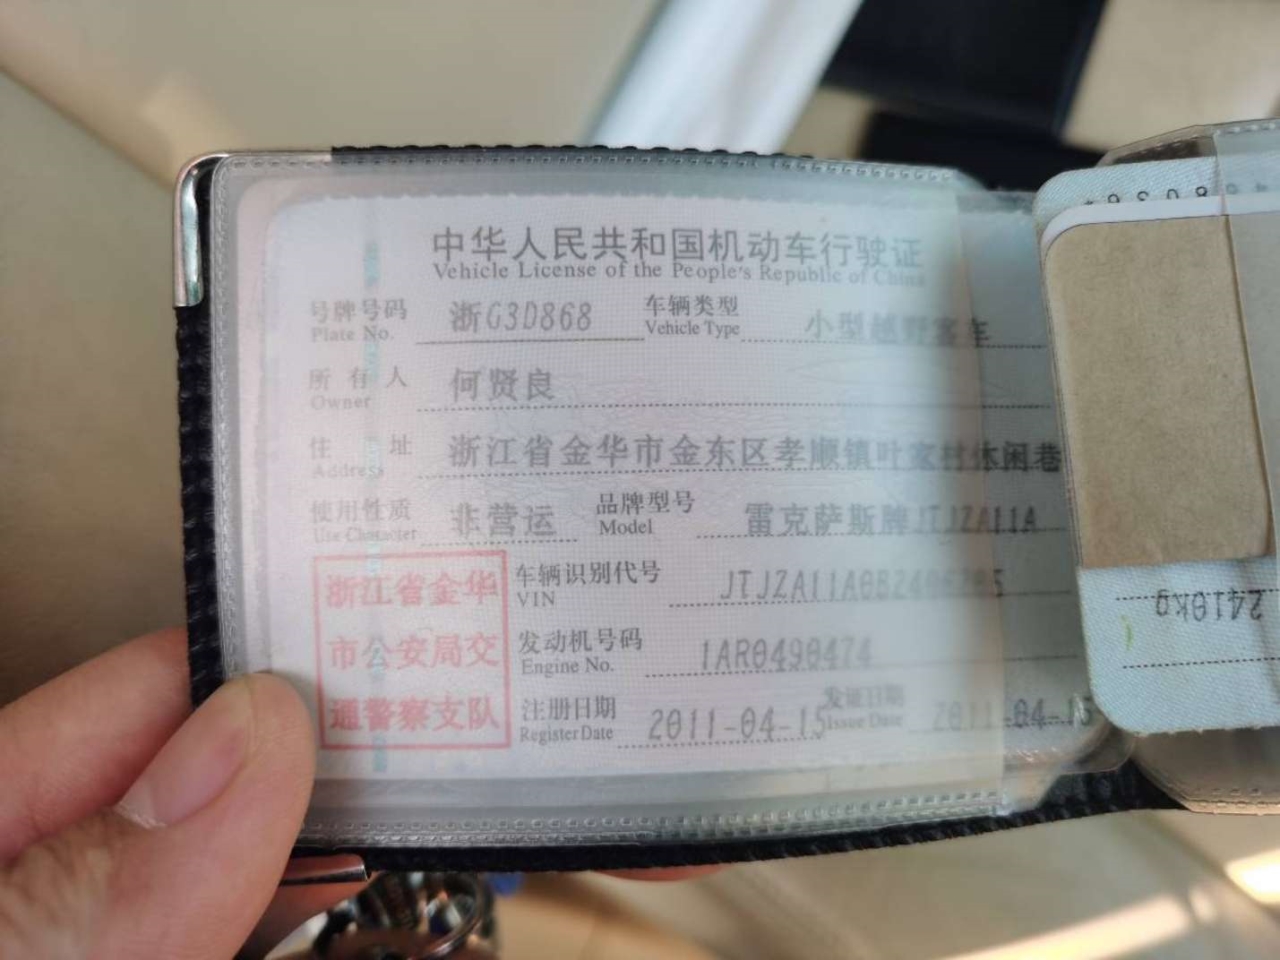 中华人民共和国机动车行驶证
Vehicle License of the People's Republic of China
号牌号码 浙G3D868 车辆类型 小型越野客车
Plate No. Vehicle Type
所有人 何贤良
Owner
住址 浙江省金华市金东区孝顺镇叶家村休闲巷
Address
使用性质 非营运 品牌型号 雷克萨斯牌JTJZA11A
Use Character Model
车辆识别代号
VIN
发动机号码 1AR0490474
Engine No.
注册日期 2011-04-15 发证日期 2011-04-15
Register Date Issue Date
浙江省金华
市公安局交
通警察支队
2410kg